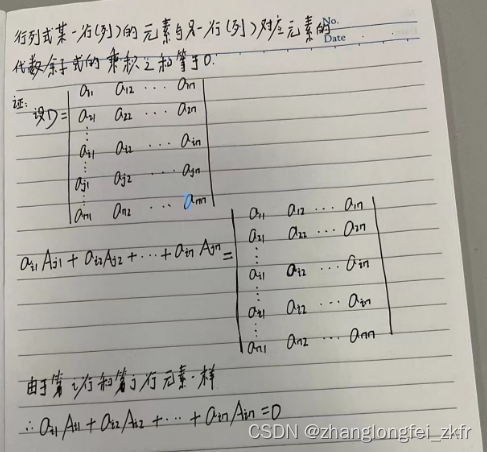 行列式某一行(列)的元素与另一行(列)对应元素的
No.
Date
代数余子式的乘积之和等于0.
证:
设D=
a11 a12 ⋯ a1n
a21 a22 ⋯ a2n
⋮
ai1 ai2 ⋯ ain
⋮
aj1 aj2 ⋯ ajn
⋮
an1 an2 ⋯ ann
ai1Aj1+ai2Aj2+⋯+ainAjn=
a11 a12 ⋯ a1n
a21 a22 ⋯ a2n
⋮
ai1 ai2 ⋯ ain
⋮
ai1 ai2 ⋯ ain
⋮
an1 an2 ⋯ ann
由于第i行和第j行元素一样
∴ai1Ai1+ai2Ai2+⋯+ainAin=0
CSDN @zhanglongfei_zkfr